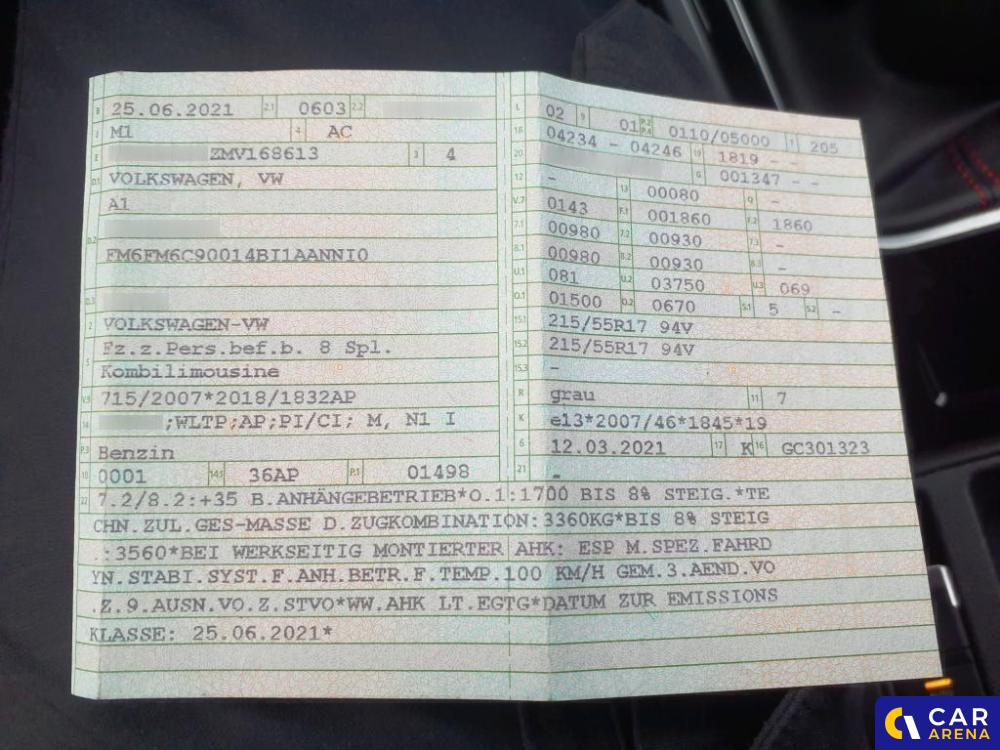 B 25.06.2021 2.1 0603 2.2
J M1 4 AC
E ZMV168613 3 4
D.1 VOLKSWAGEN, VW
A1
D.2
FM6FM6C90014BI1AANNI0
D.3
2 VOLKSWAGEN-VW
5 Fz.z.Pers.bef.b. 8 Spl.
Kombilimousine
V.9 715/2007*2018/1832AP
14 ;WLTP;AP;PI/CI; M, N1 I
P.3 Benzin
10 0001 14.1 36AP P.1 01498
L 02 9 01 P.2 P.4 0110/05000 T 205
18 04234 - 04246 19 1819 - -
20 G 001347 - -
12 - 13 00080 Q -
V.7 0143 F.1 001860 F.2 1860
7.1 00980 7.2 00930 7.3 -
8.1 00980 8.2 00930 8.3 -
U.1 081 U.2 03750 U.3 069
O.1 01500 O.2 0670 S.1 5 S.2 -
15.1 215/55R17 94V
15.2 215/55R17 94V
15.3 -
R grau 11 7
K e13*2007/46*1845*19
6 12.03.2021 17 K 16 GC301323
21 -
22 7.2/8.2:+35 B.ANHÄNGEBETRIEB*O.1:1700 BIS 8% STEIG.*TE
CHN.ZUL.GES-MASSE D.ZUGKOMBINATION:3360KG*BIS 8% STEIG
.:3560*BEI WERKSEITIG MONTIERTER AHK: ESP M.SPEZ.FAHRD
YN.STABI.SYST.F.ANH.BETR.F.TEMP.100 KM/H GEM.3.AEND.VO
.Z.9.AUSN.VO.Z.STVO*WW.AHK LT.EGTG*DATUM ZUR EMISSIONS
KLASSE: 25.06.2021*
CAR
ARENA